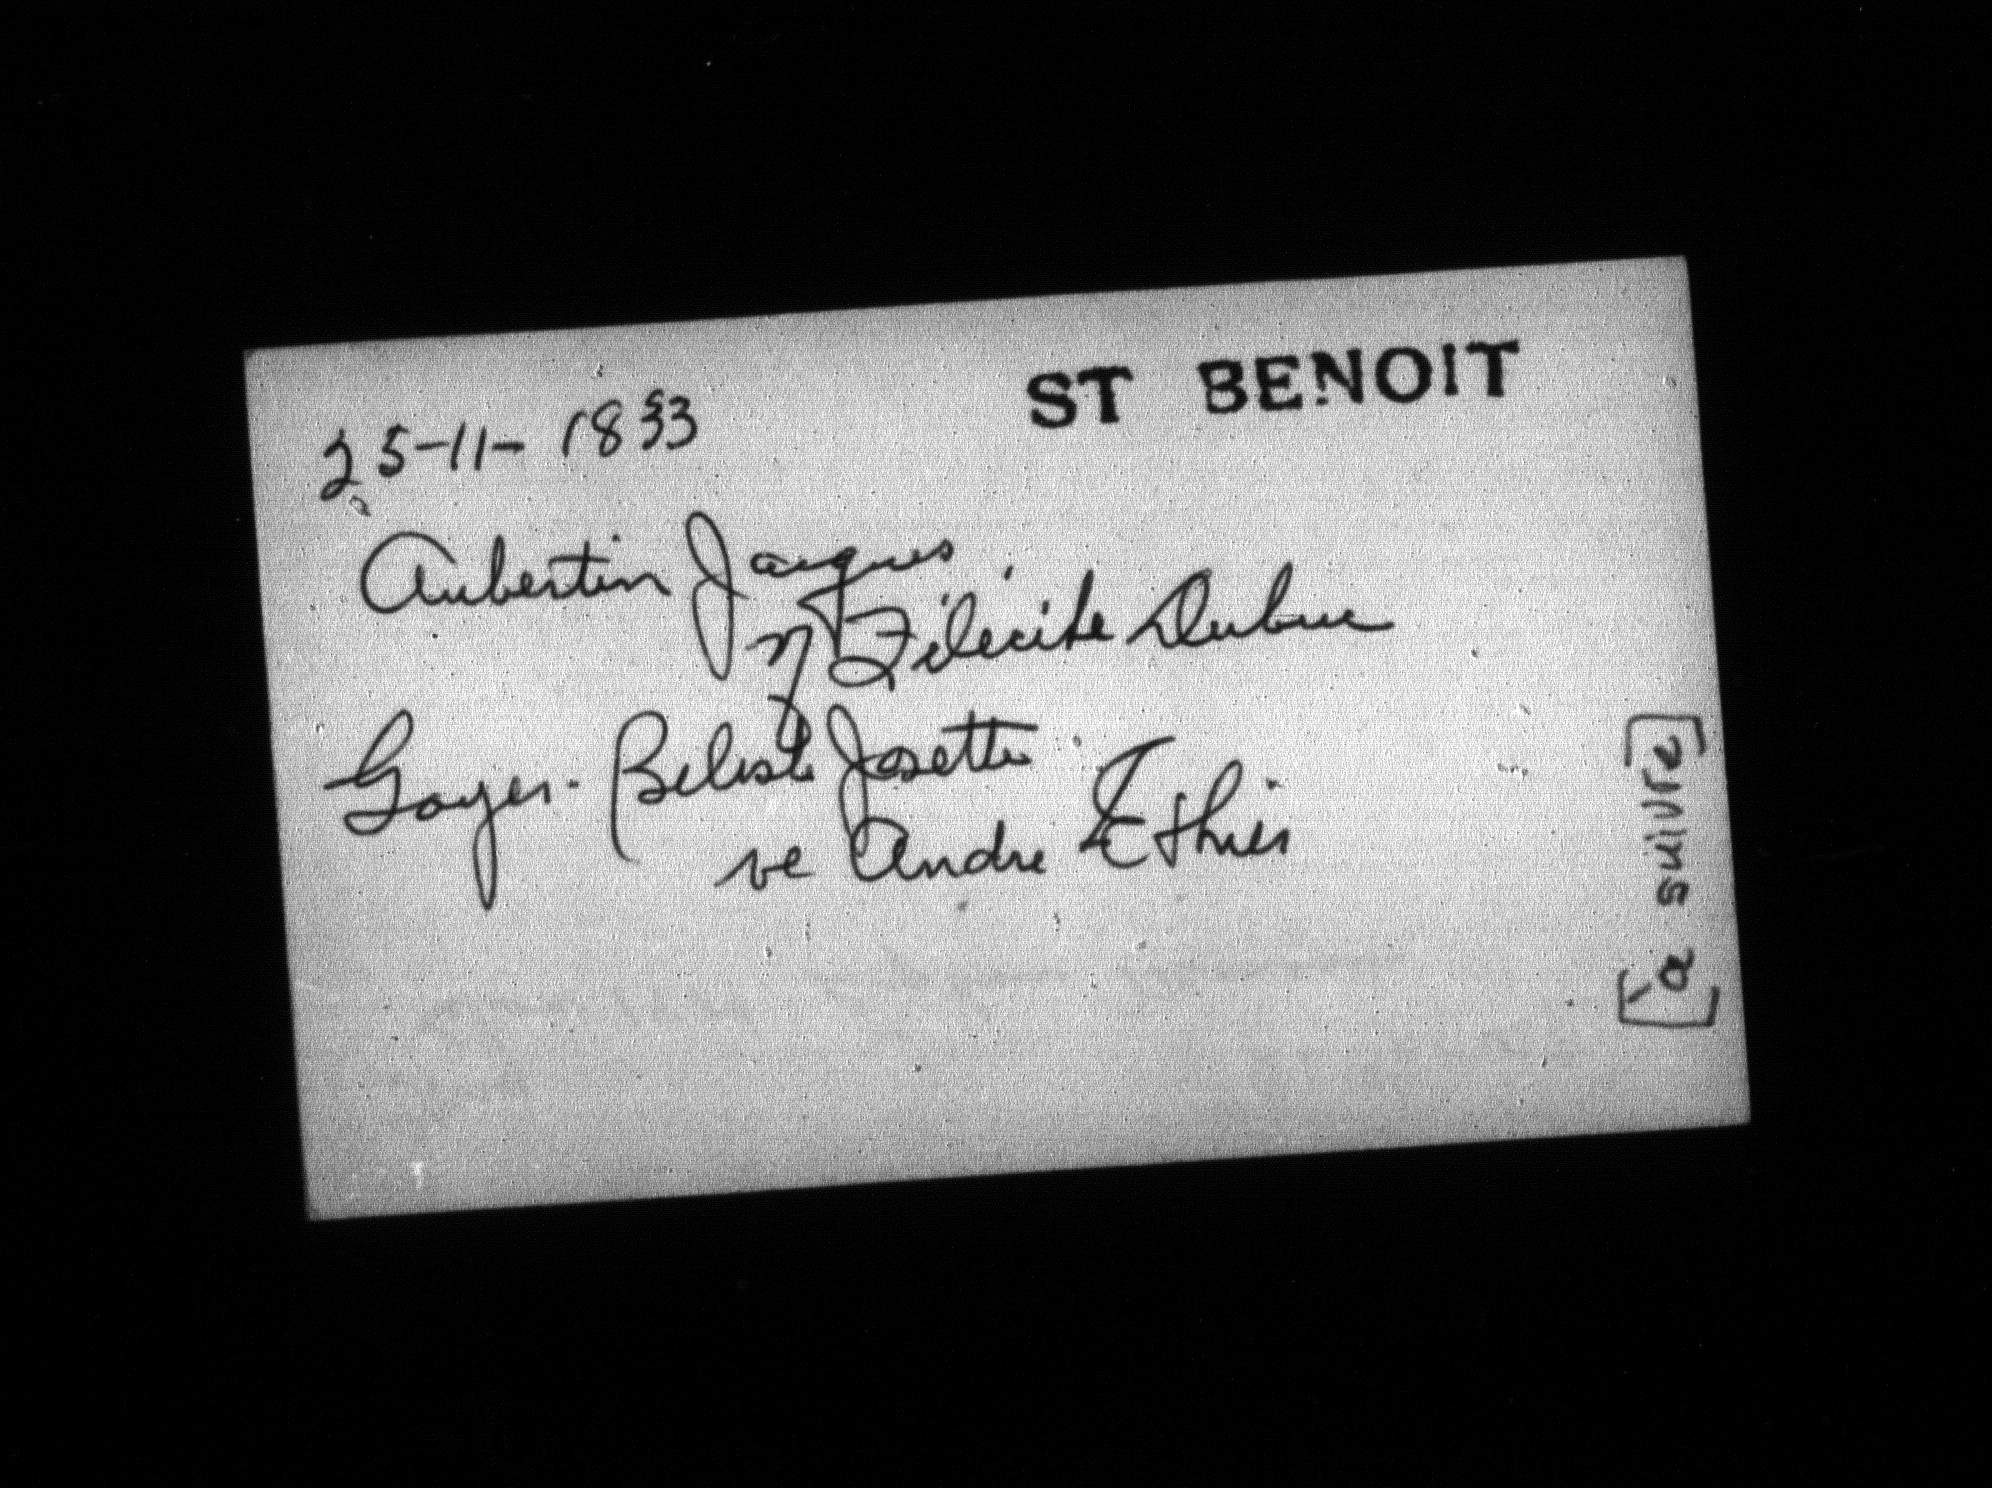 ST BENOIT
25-11-1833
Aubertin Jacques
vf Félicité Dubuc
Goyer-Belisle Josette
ve Andre Ethier
[à suivre]